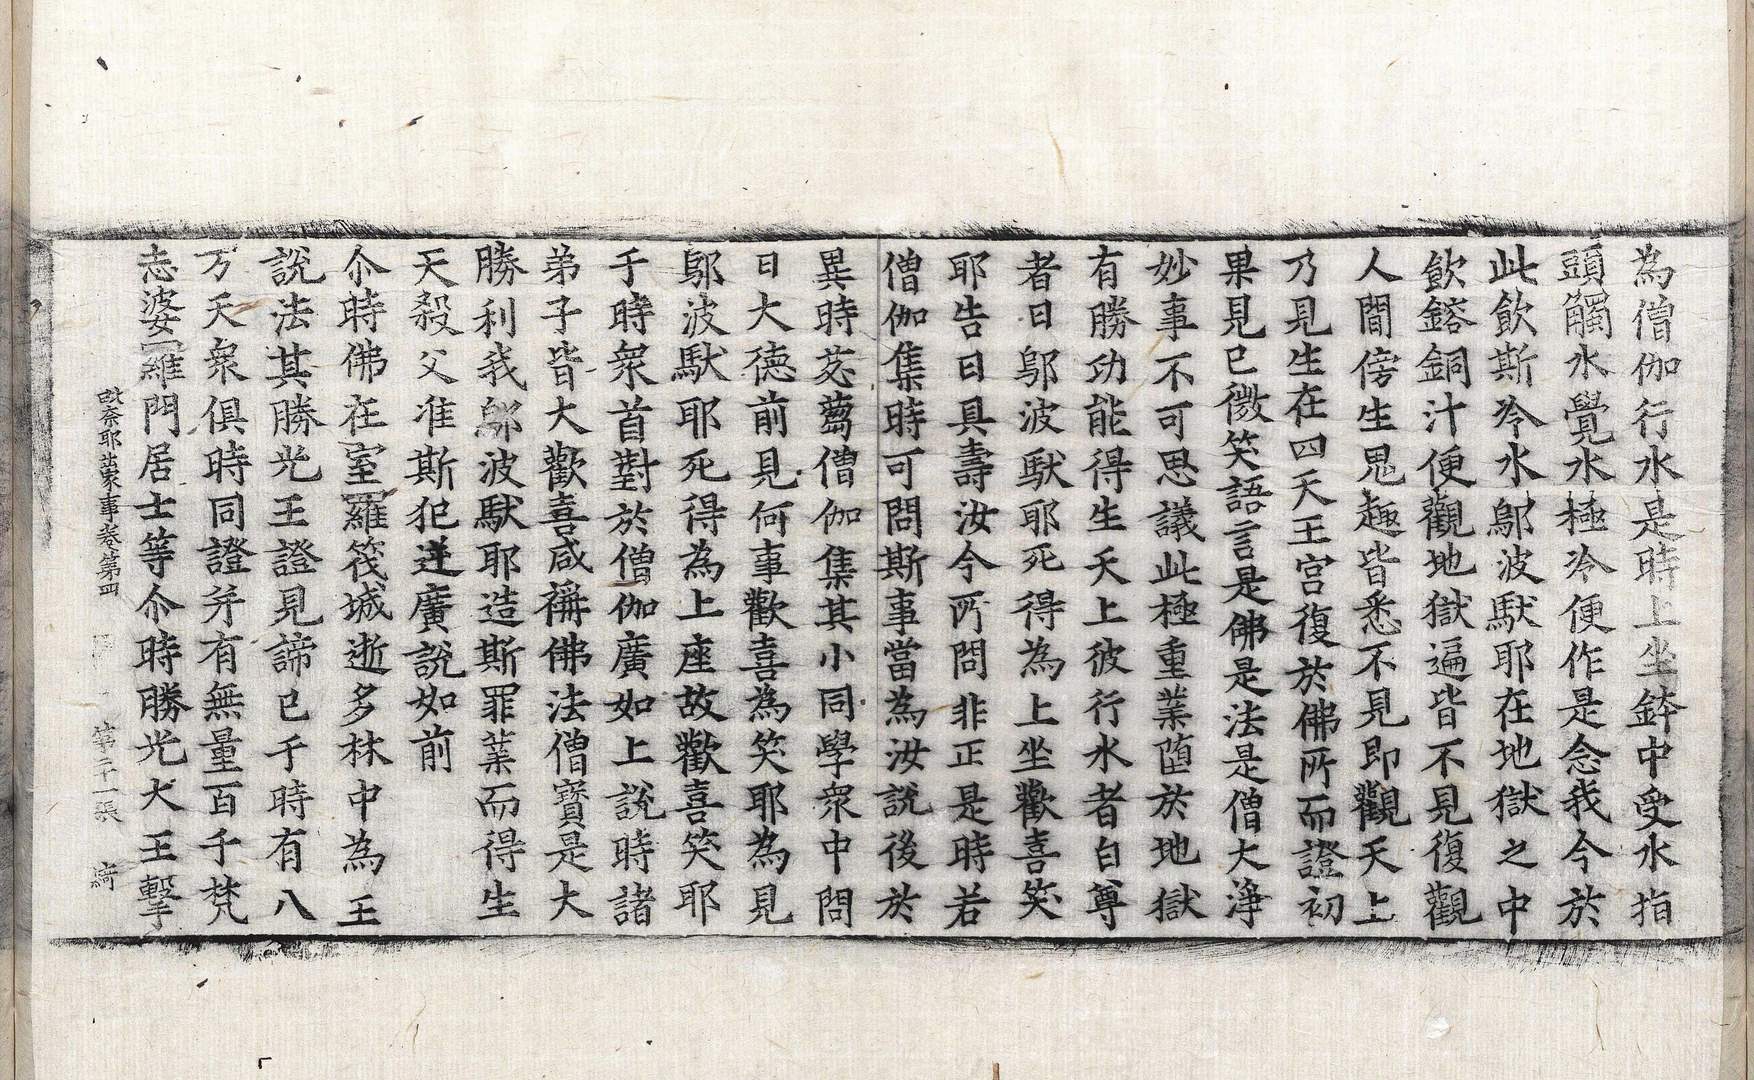 為僧伽行水是時上坐鉢中受水指
頭觸水覺水極冷便作是念我今於
此飲斯冷水鄔波馱耶在地獄之中
飲鎔銅汁便觀地獄遍皆不見復觀
人間傍生鬼趣皆悉不見即觀天上
乃見生在四天王宮復於佛所而證初
果見已微笑語言是佛是法是僧大淨
妙事不可思議此極重業墮於地獄
有勝功能得生天上彼行水者白尊
者曰鄔波馱耶死得為上坐歡喜笑
耶告曰具壽汝今所問非正是時若
僧伽集時可問斯事當為汝說後於
異時苾蒭僧伽集其小同學衆中問
曰大德前見何事歡喜為笑耶為見
鄔波馱耶死得為上座故歡喜笑耶
于時衆首對於僧伽廣如上說時諸
弟子皆大歡喜咸稱佛法僧寶是大
勝利我鄔波馱耶造斯罪業而得生
天殺父准斯犯逆廣說如前
尒時佛在室羅筏城逝多林中為王
說法其勝光王證見諦已于時有八
万天衆俱時同證并有無量百千梵
志婆羅門居士等尒時勝光大王擊
毗奈耶藥事卷第四 第二十一張 綺